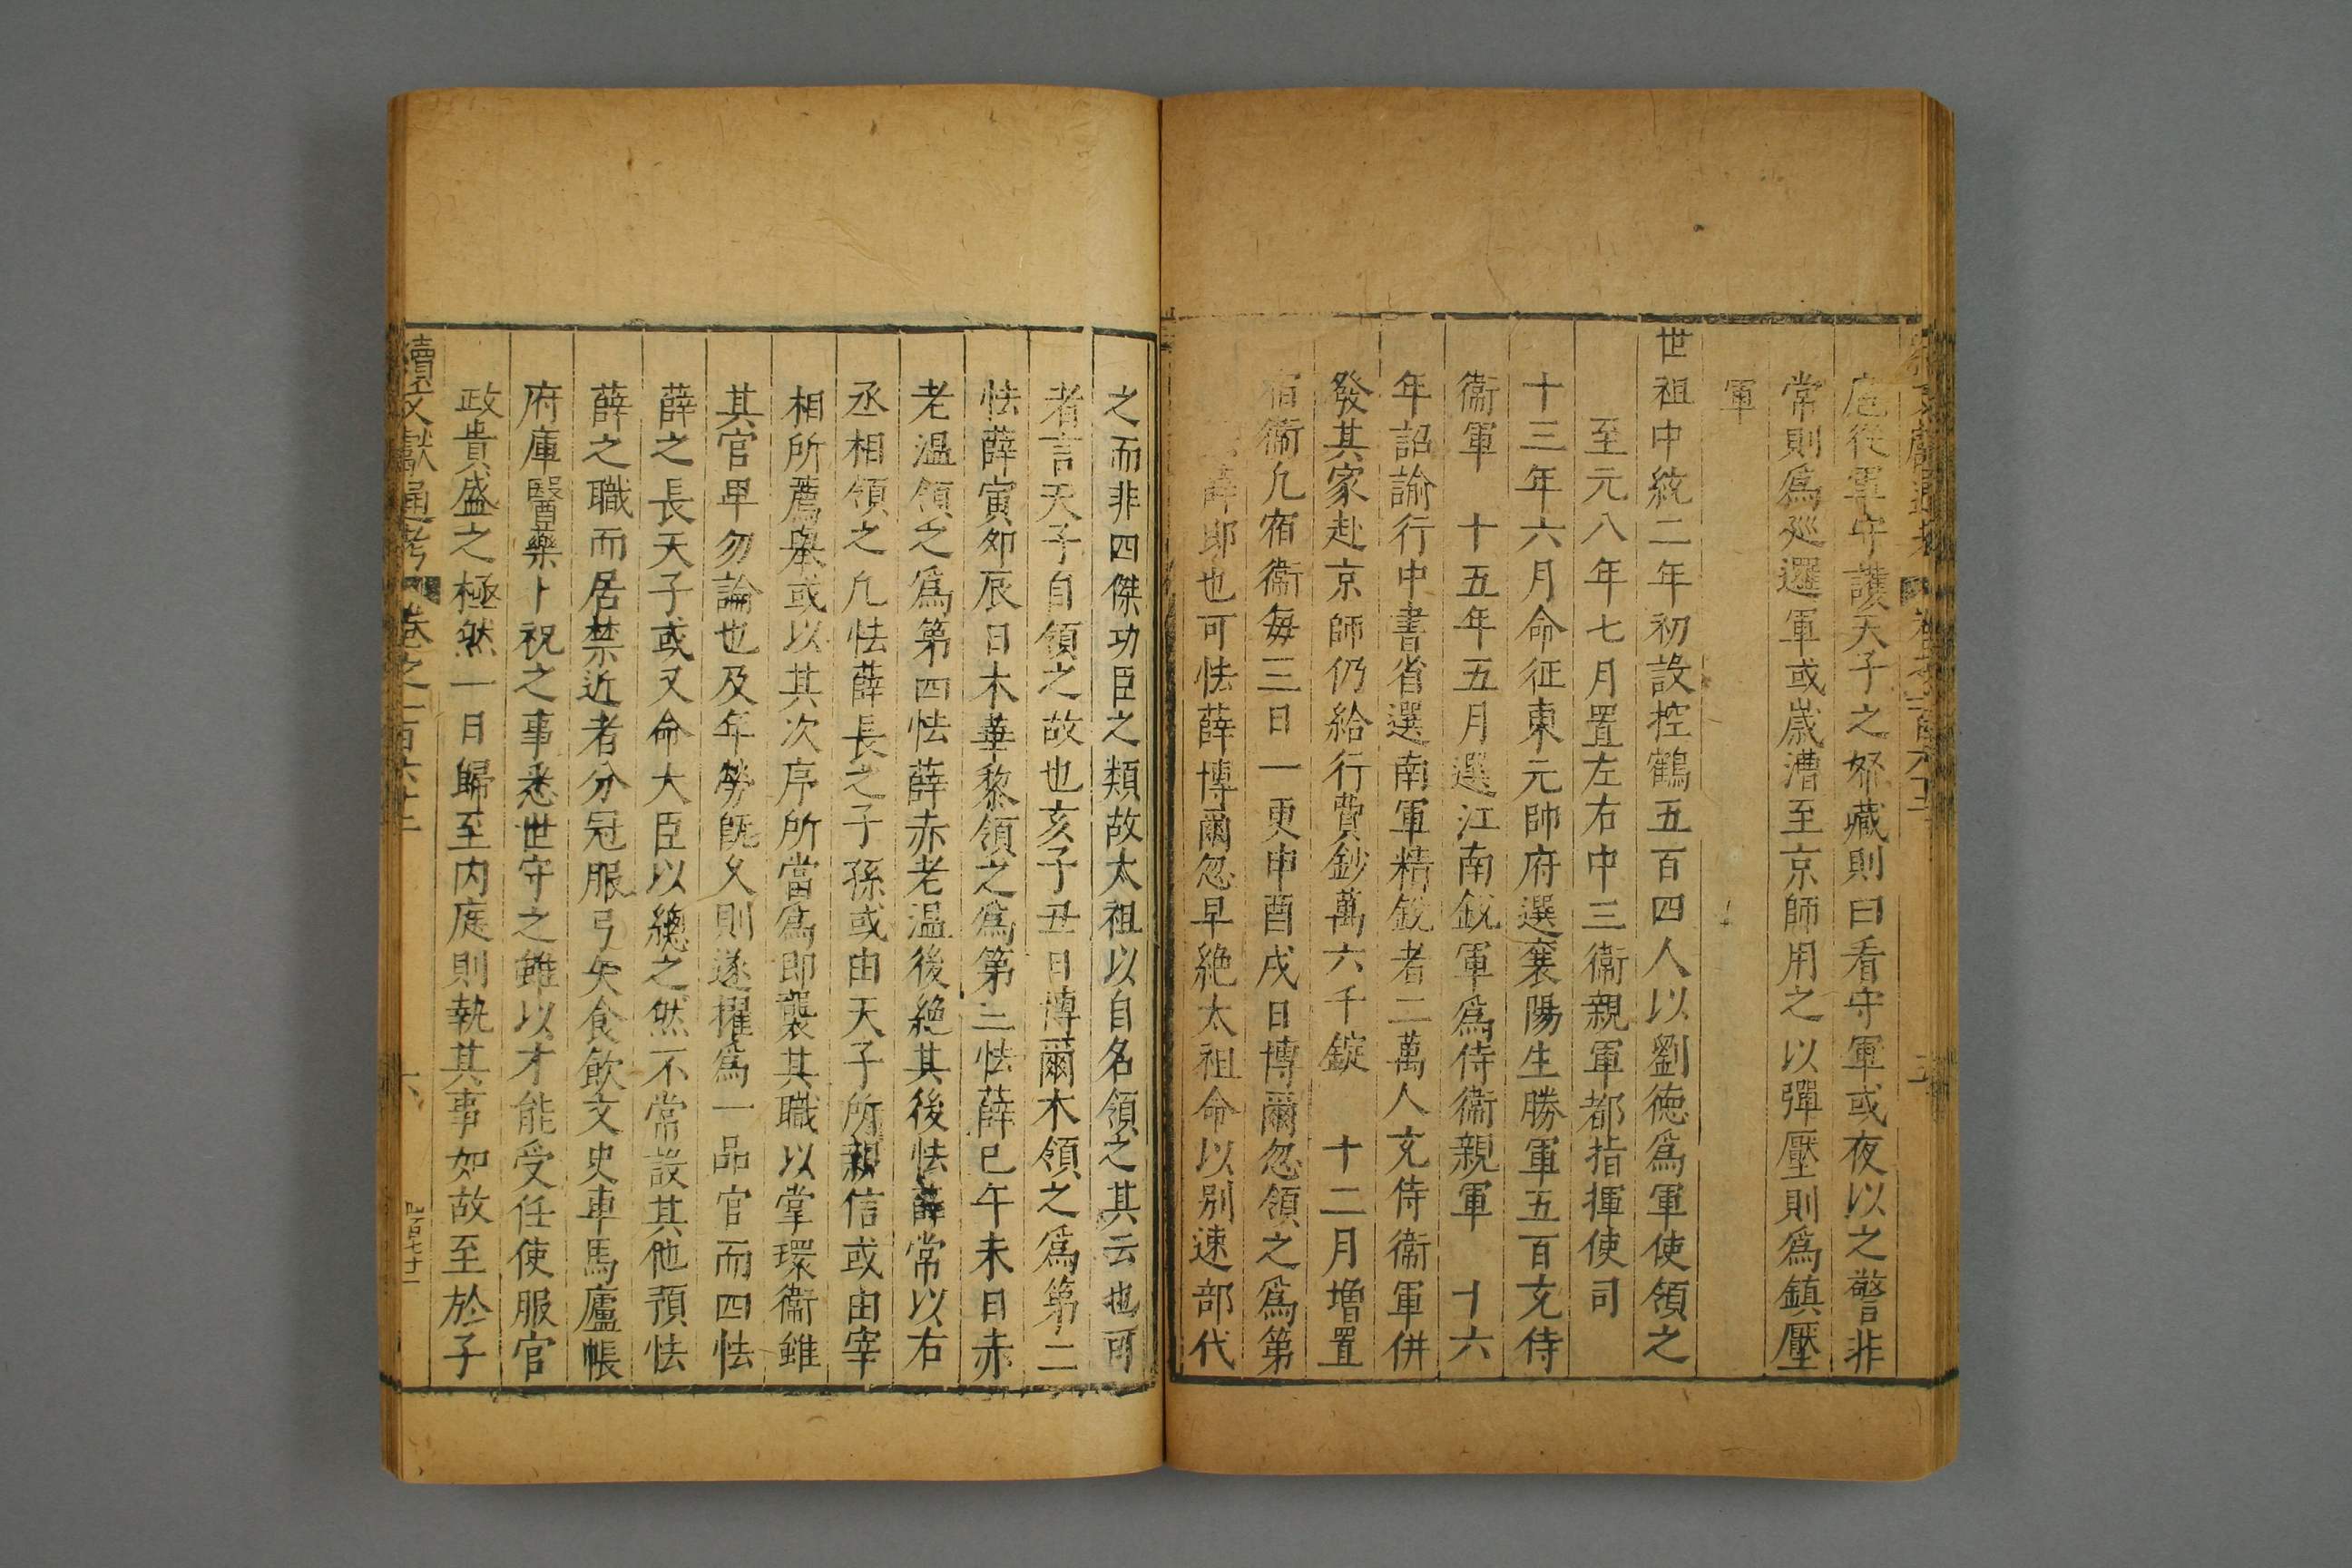 扈從軍守護天子之帑藏則曰看守軍或夜以之警非
常則為廵邏軍或歳漕至京師用之以彈壓則為鎮壓
軍
世祖中統二年初設控鶴五百四人以劉徳為軍使領之
至元八年七月置左右中三衞親軍都指揮使司
十三年六月命征東元帥府選襄陽生勝軍五百充侍
衞軍 十五年五月選江南銳軍為侍衞親軍 十六
年詔諭行中書省選南軍精銳者二萬人充侍衞軍併
發其家赴京師仍給行費鈔萬六千錠 十二月增置
宿衞凢宿衞每三日一更申酉戌日博爾忽領之為第
薛即也可怯薛博爾忽早絶太祖命以别速部代
之而非四傑功臣之類故太祖以自名領之其云也可
者言天子自領之故也亥子丑日博爾木領之為第二
怯薛寅夘辰日木華黎領之為第三怯薛巳午未日赤
老温領之為第四怯薛赤老温後絶其後怯薛常以右
丞相領之凢怯薛長之子孫或由天子所親信或由宰
相所薦舉或以其次序所當為即襲其職以掌環衞雖
其官卑勿論也及年勞旣久則遂擢為一品官而四怯
薛之長天子或又命大臣以總之然不常設其他預怯
薛之職而居禁近者分冠服弓矢食飲文史車馬廬帳
府庫醫藥卜祝之事悉世守之雖以才能受任使服官
政貴盛之極然一日歸至内庭則執其事如故至於子
續文獻通考 卷之一百六十二 六 四百七十二